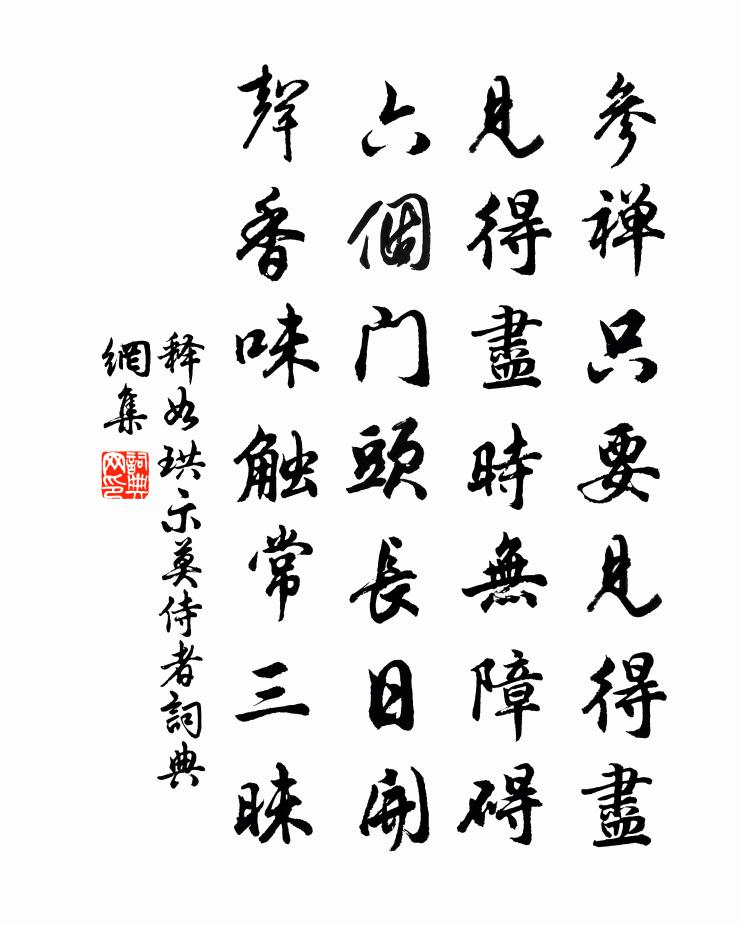 參禅只要見得盡
見得盡時無障碍
六個门頭長日開
聲香味触常三昧
释如珙示莫侍者詞典
網集
詞典网印